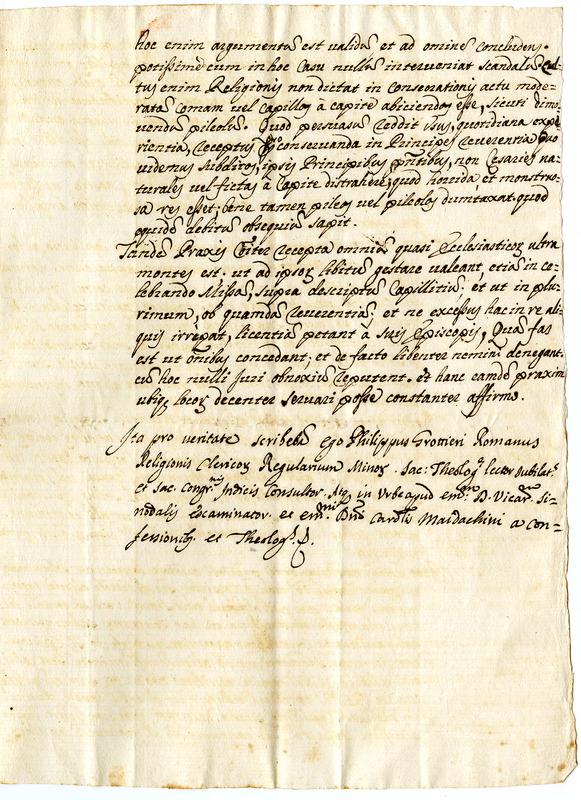 hoc enim argumentũ est validũ et ad omine concludens.
potissimè cum in hoc casu nullũ interveniat scandalũ. Cul-
tus enim Religionis non dictat in conservationis actu mode-
ratã comam vel capillos à capite abiiciendos esse, sicuti dimo-
vendũ pileolũ. Quod persuasũ reddit usus, quotidiana expe-
rientia, receptus conservanda in Principes reverentia Quo
videmus subditos, ipsis Principibus pñtibus, non Cesaries na-
turales vel fictas à capite distrahere, quod horridũ et monstruo-
sa res esset; bene tamen pileos vel pileolos dumtaxat. quod
quidẽ debitũ obsequiũ sapit.
Tandẽ Praxis recepta omniũ quasi Ecclesiasticoꝝ ultra
montes est. ut ad ipsoꝝ libitũ gestare valeant, etiã in ce-
lebrando Missã, supra descriptũ Capillitiũ; et ut in plu-
rimum, ob quamdã reverentiã; et ne excessus hac in re ali-
quis irrepat, licentiã petant à suis Episcopis, Quã fas
est ut oñibus concedant; et de facto libenter nemini denegant.
cũ hoc nulli Juri obnoxiũ reputent. et hanc eamdẽ praxim
ubiqȝ locoꝝ decenter servari posse constanter affirmo.
Ita pro veritate scribebã ego Philippus Grottieri Romanus
Religionis Clericoꝝ Regularium Minoꝝ. Sac: Theologᵉ lector Jubilatꝰ
et sac. Congrⁿⁱˢ Indicis Consultor. Atqȝ in Urbe apud emᵐ D. Vicarᵐ Si-
nodalis Examinator. et emᵐⁱ Dñi Cardlis Maidachini a con-
fessionibꝰ et Theologꝰ.